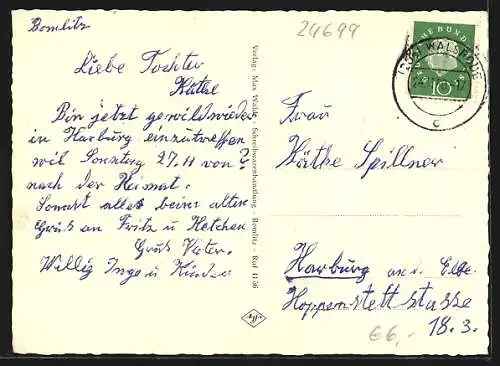 Bomlitz
24699
Liebe Tochter
Käthe
Bin jetzt gewild wieder
in Harburg einzutreffen
wil Sonntag 27.11 von ?
nach der Heimat.
Sonst alles beim alten
Gruß an Fritz u Hetchen
Gruß Vater.
Willig Inge u Kinder
Verlag: Max Walde, Schreibwarenhandlung - Bomlitz - Ruf 11 56
WALSRODE
c
10
Frau
Käthe Spillner
Harburg an d. Elbe
Hoppenstettstasse
18.3.
€6,-